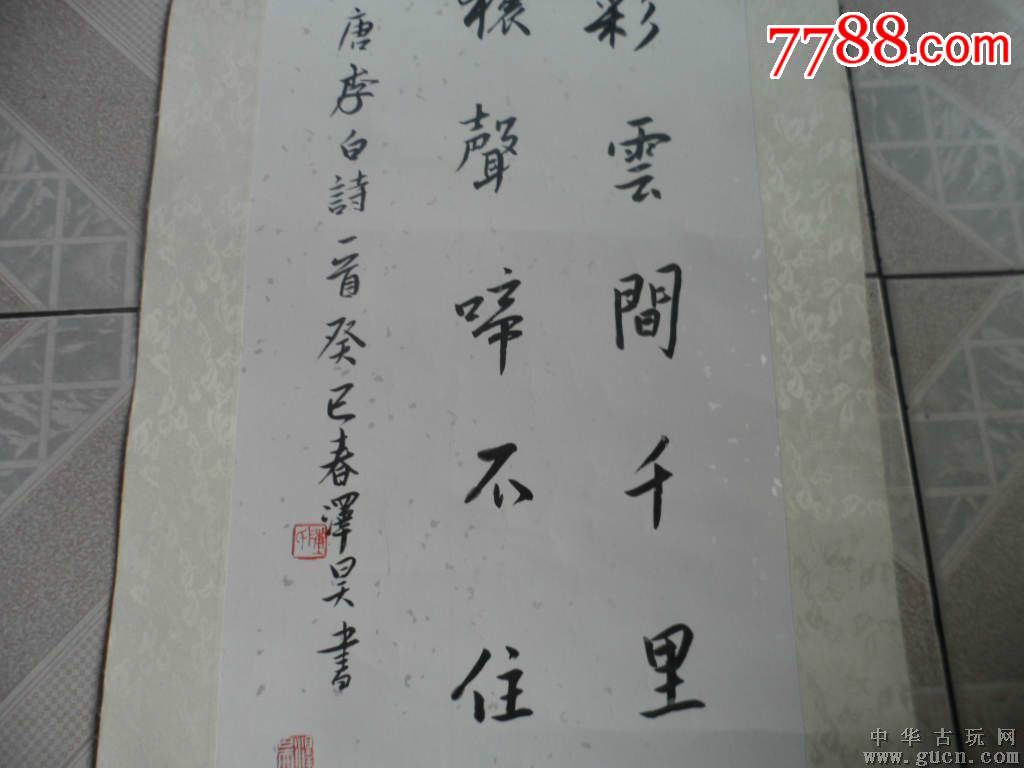 彩雲間千里
猿聲啼不住
唐李白詩一首癸巳春澤昊書
7788.com
中华古玩网
www.gucn.com